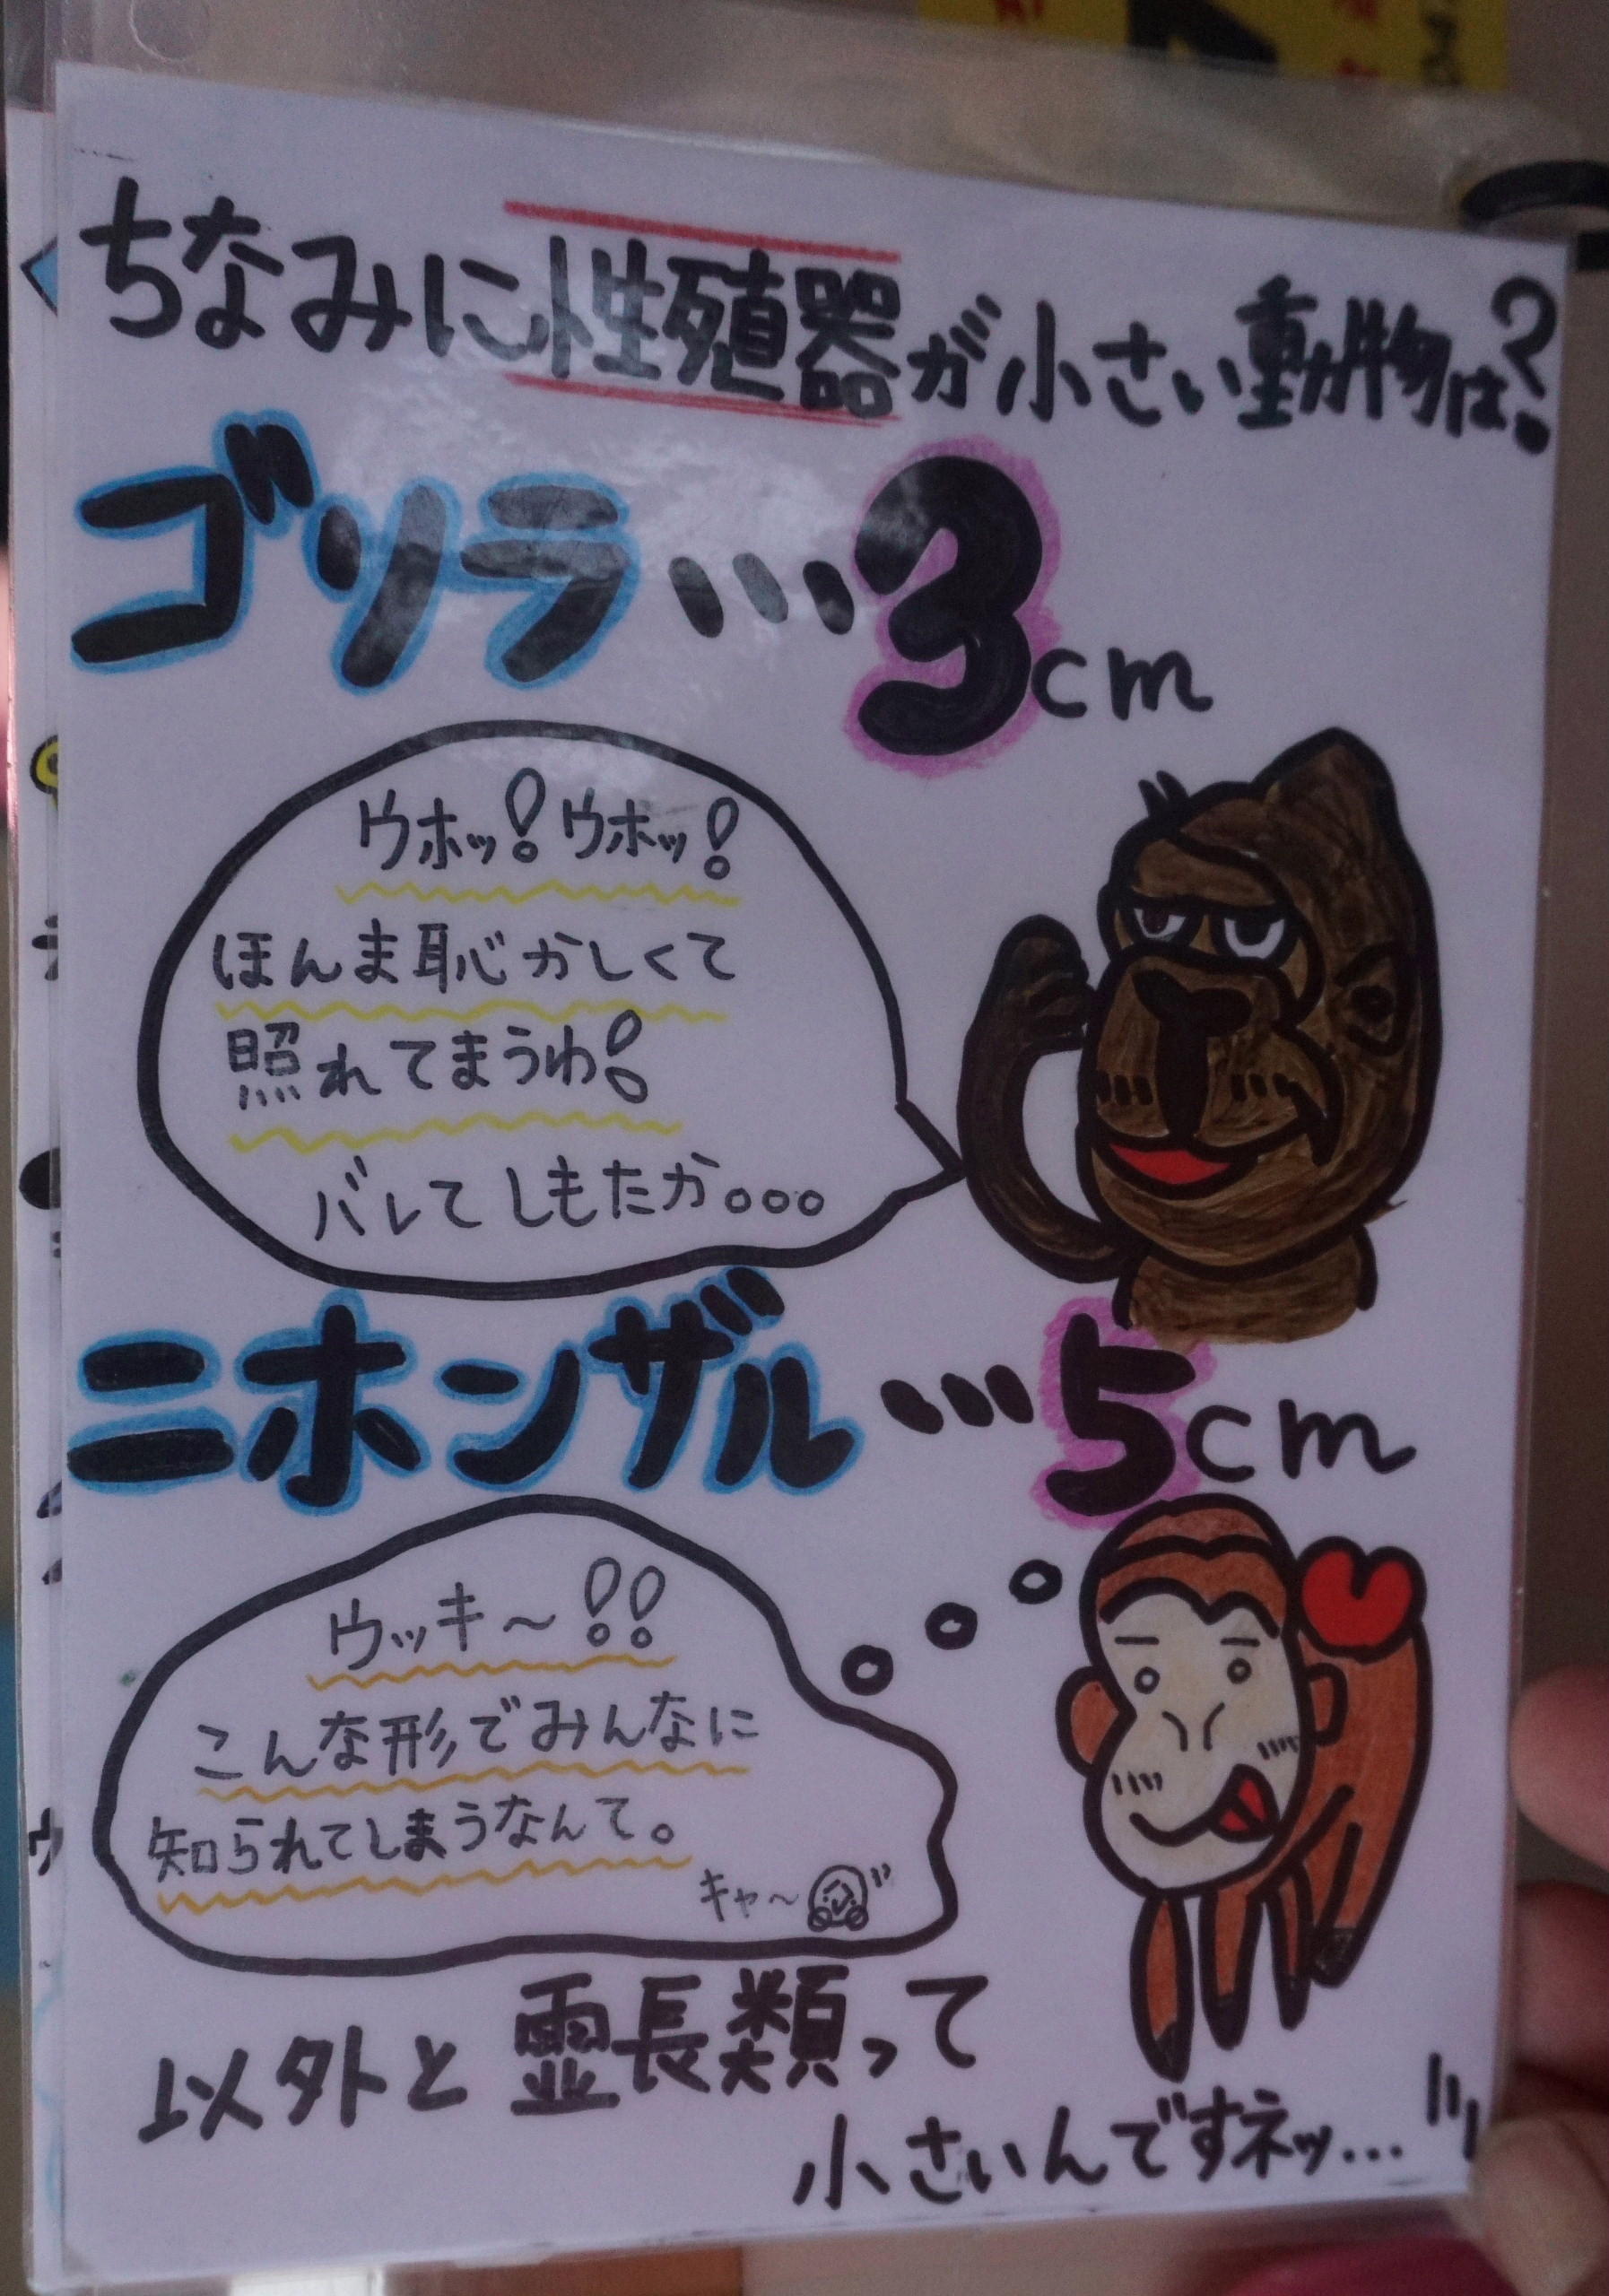 ちなみに性殖器が小さい動物は?
ゴリラ…3cm
ウホッ!ウホッ!
ほんま恥かしくて
照れてまうわ!
バレてしもたか。。。
ニホンザル…5cm
ウッキ〜!!
こんな形でみんなに
知られてしまうなんて。
キャ〜
以外と霊長類って
小さいんですネッ…